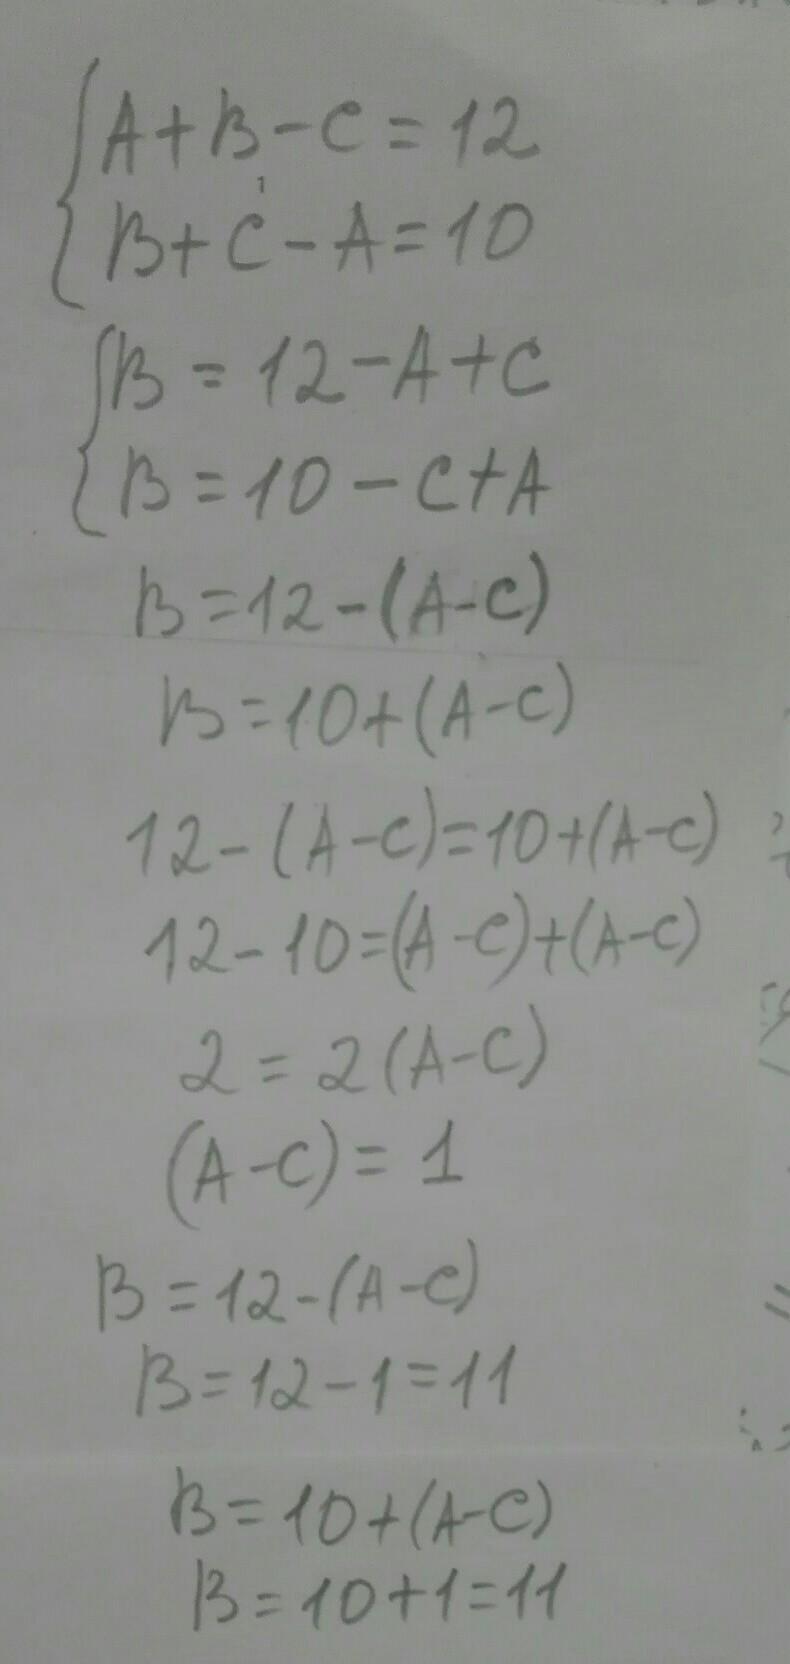 A+B-C=12
B+C-A=10
B=12-A+C
B=10-C+A
B=12-(A-C)
B=10+(A-C)
12-(A-C)=10+(A-C)
12-10=(A-C)+(A-C)
2=2(A-C)
(A-C)=1
B=12-(A-C)
B=12-1=11
B=10+(A-C)
B=10+1=11